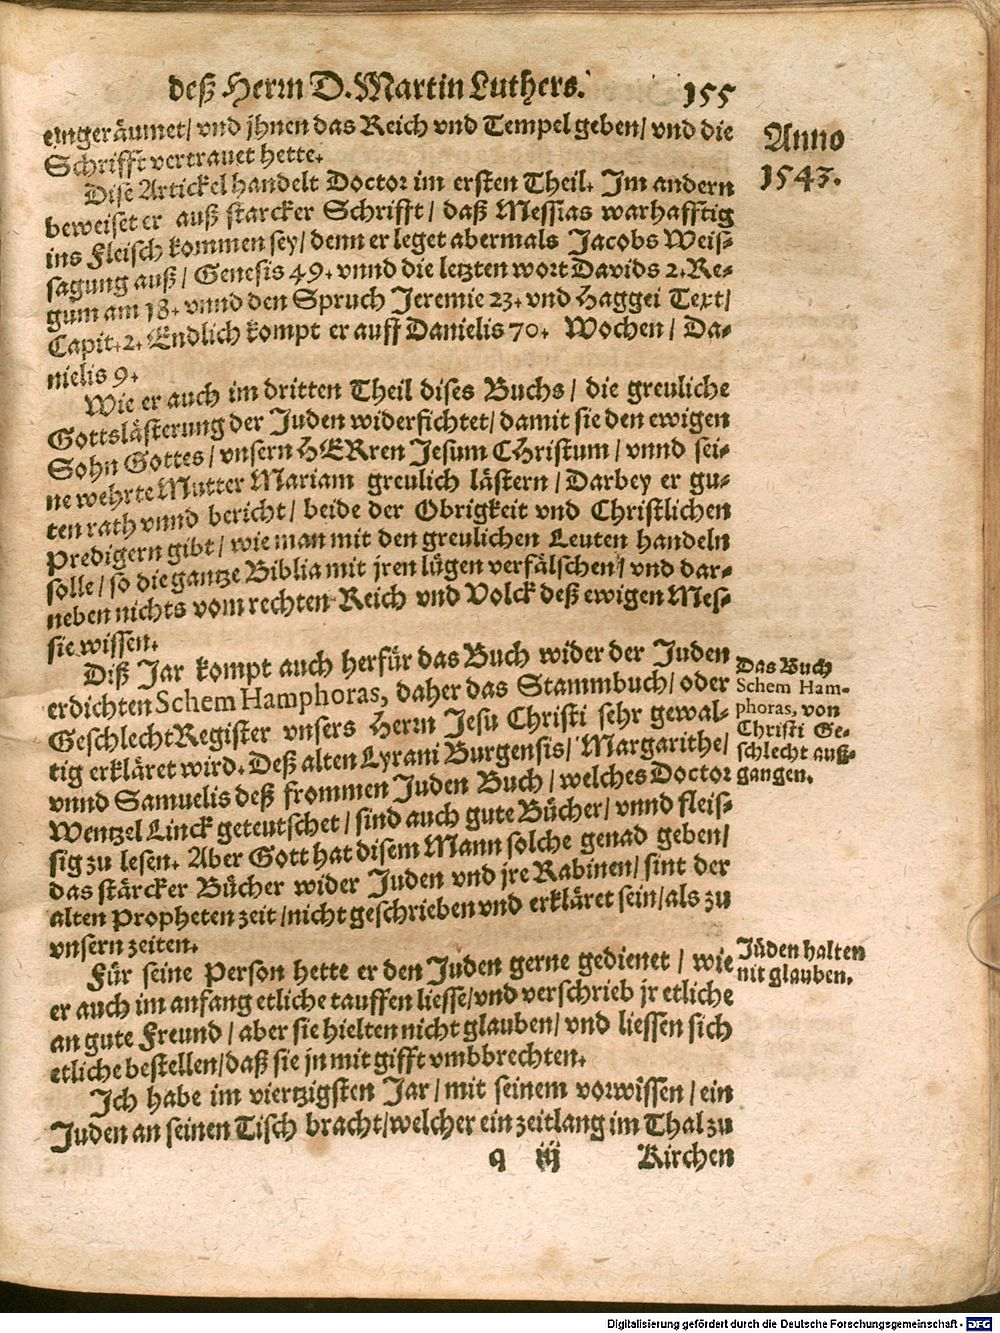 deß Herrn D. Martin Luthers.
155
eingeräumet/ vnd jhnen das Reich vnd Tempel geben/ vnd die
Schrifft vertrauet hette.
Anno
1543.
Dise Artickel handelt Doctor im ersten Theil. Im andern
beweiset er auß starcker Schrifft/ daß Messias warhafftig
ins Fleisch kommen sey/ denn er leget abermals Jacobs Weis-
sagung auß/ Genesis 49. vnnd die letzten wort Davids 2. Re-
gum am 18. vnnd den Spruch Jeremie 23. vnd Haggei Text/
Capit. 2. Endlich kompt er auff Danielis 70. Wochen/ Da-
nielis 9.
Wie er auch im dritten Theil dises Buchs/ die greuliche
Gottslästerung der Juden widerfichtet/ damit sie den ewigen
Sohn Gottes/ vnsern HERren Jesum CHristum/ vnnd sei-
ne wehrte Mutter Mariam greulich lästern/ Darbey er gu-
ten rath vnnd bericht/ beide der Obrigkeit vnd Christlichen
Predigern gibt/ wie man mit den greulichen Leuten handeln
solle/ so die gantze Biblia mit jren lügen verfälschen/ vnd dar-
neben nichts vom rechten Reich vnd Volck deß ewigen Mes-
sie wissen.
Diß Jar kompt auch herfür das Buch wider der Juden
erdichten Schem Hamphoras, daher das Stammbuch/ oder
GeschlechtRegister vnsers Herrn Jesu Christi sehr gewal-
tig erkläret wird. Deß alten Lyrani Burgensis/ Margarithe/
vnnd Samuelis deß frommen Juden Buch/ welches Doctor
Wentzel Linck geteutschet/ sind auch gute Bücher/ vnnd fleis-
sig zu lesen. Aber Gott hat disem Mann solche genad geben/
das stärcker Bücher wider Juden vnd jre Rabinen/ sint der
alten Propheten zeit/ nicht geschrieben vnd erkläret sein/ als zu
vnsern zeiten.
Das Buch
Schem Ham-
phoras, von
Christi Ge-
schlecht auß-
gangen.
Für seine Person hette er den Juden gerne gedienet/ wie
er auch im anfang etliche tauffen liesse/ vnd verschrieb jr etliche
an gute Freund/ aber sie hielten nicht glauben/ vnd liessen sich
etliche bestellen/ daß sie jn mit gifft vmbbrechten.
Jüden halten
nit glauben.
Ich habe im viertzigsten Jar/ mit seinem vorwissen/ ein
Juden an seinen Tisch bracht/ welcher ein zeitlang im Thal zu
q iij
Kirchen
Digitalisierung gefördert durch die Deutsche Forschungsgemeinschaft - DFG